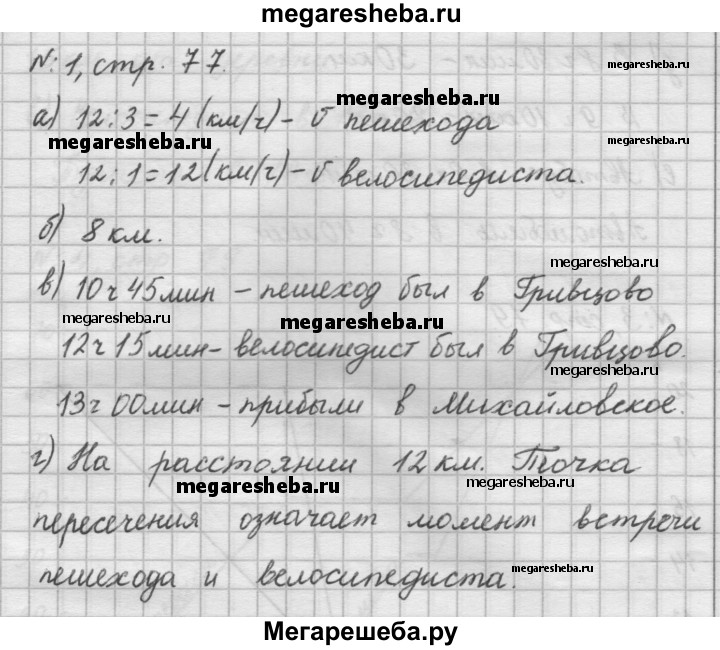 megaresheba.ru
№ 1, стр. 77.
megaresheba.ru
megaresheba.ru
а) 12:3=4(км/ч)- v пешехода
megaresheba.ru
12:1=12(км/ч)-v велосипедиста.
б) 8 км.
megaresheba.ru
в) 10ч 45мин - пешеход был в Гривцово
megaresheba.ru
megaresheba.ru
12ч 15мин- велосипедист был в Гривцово.
megaresheba.ru
13ч 00мин - прибыли в Михайловское.
г) На расстоянии 12 км. Точка
megaresheba.ru
пересечения означает момент встречи
megaresheba.ru
пешехода и велосипедиста.
Мегарешеба.ру